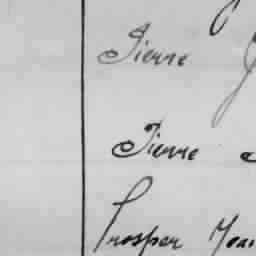 Pierre
Pierre
Prosper